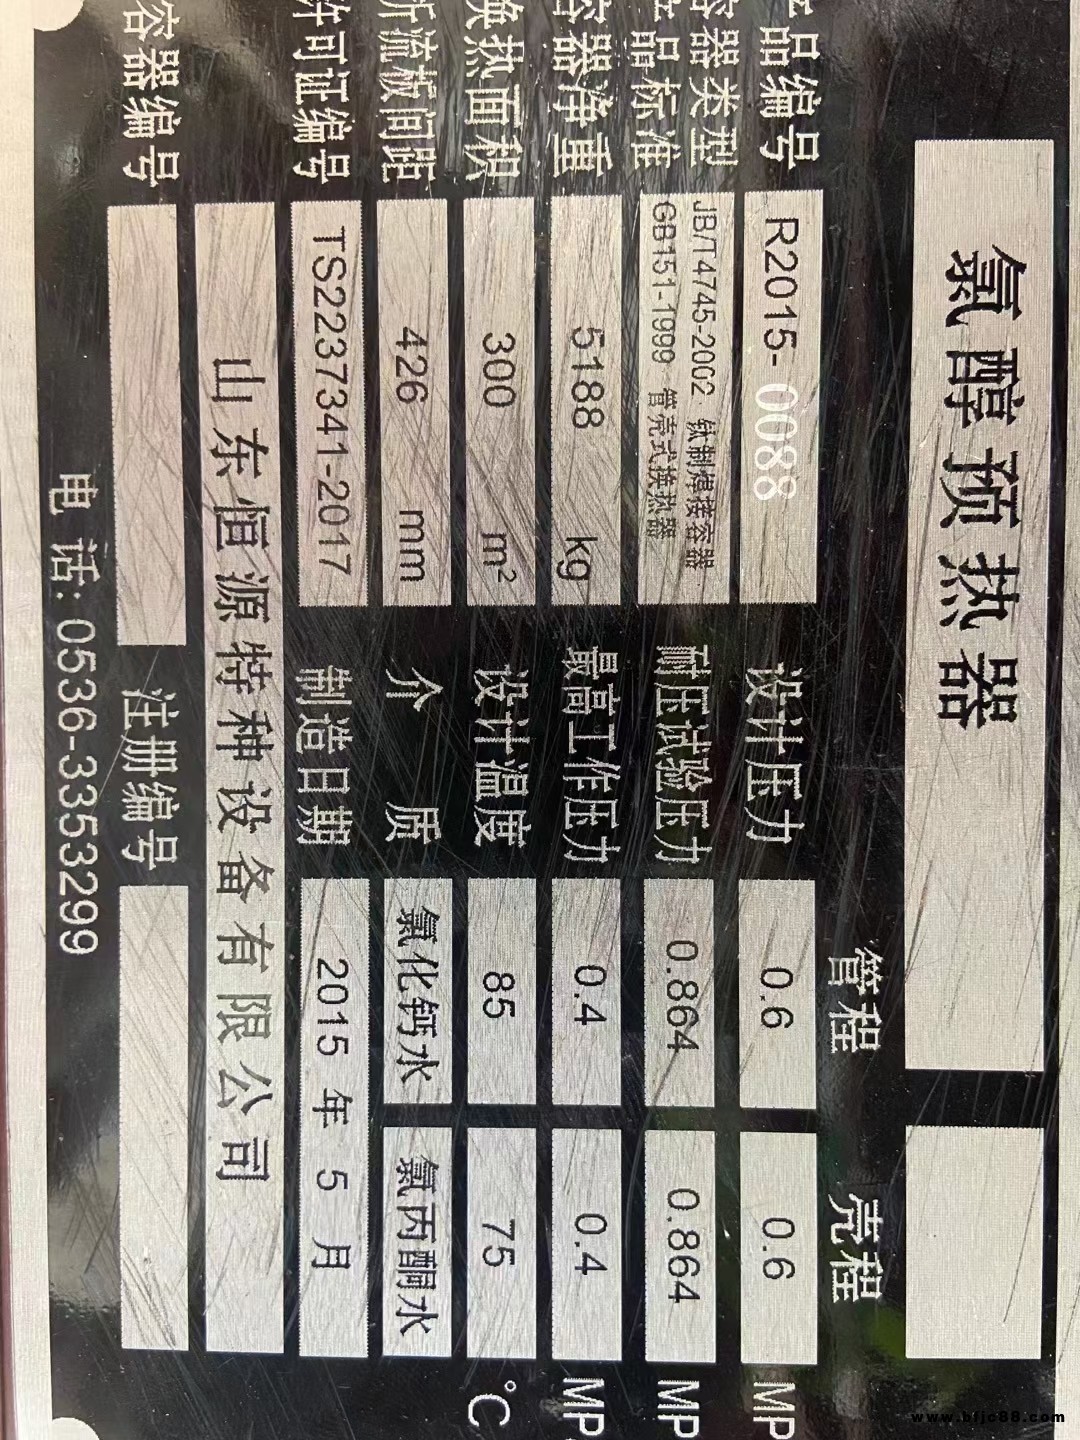 氯醇预热器
管程 壳程
产品编号 R2015-0088 设计压力 0.6 0.6 MP
容器类型 JB/T4745-2002 钛制焊接容器
产品标准 GB151-1999 管壳式换热器
耐压试验压力 0.864 0.864 MP
容器净重 5188 kg 最高工作压力 0.4 0.4 MP
换热面积 300 m² 设计温度 85 75 °C
折流板间距 426 mm 介质 氯化钙水 氯丙酮水
许可证编号 TS2237341-2017 制造日期 2015 年 5 月
山东恒源特种设备有限公司
容器编号 注册编号
电话: 0536-3353299
www.bfjc88.com